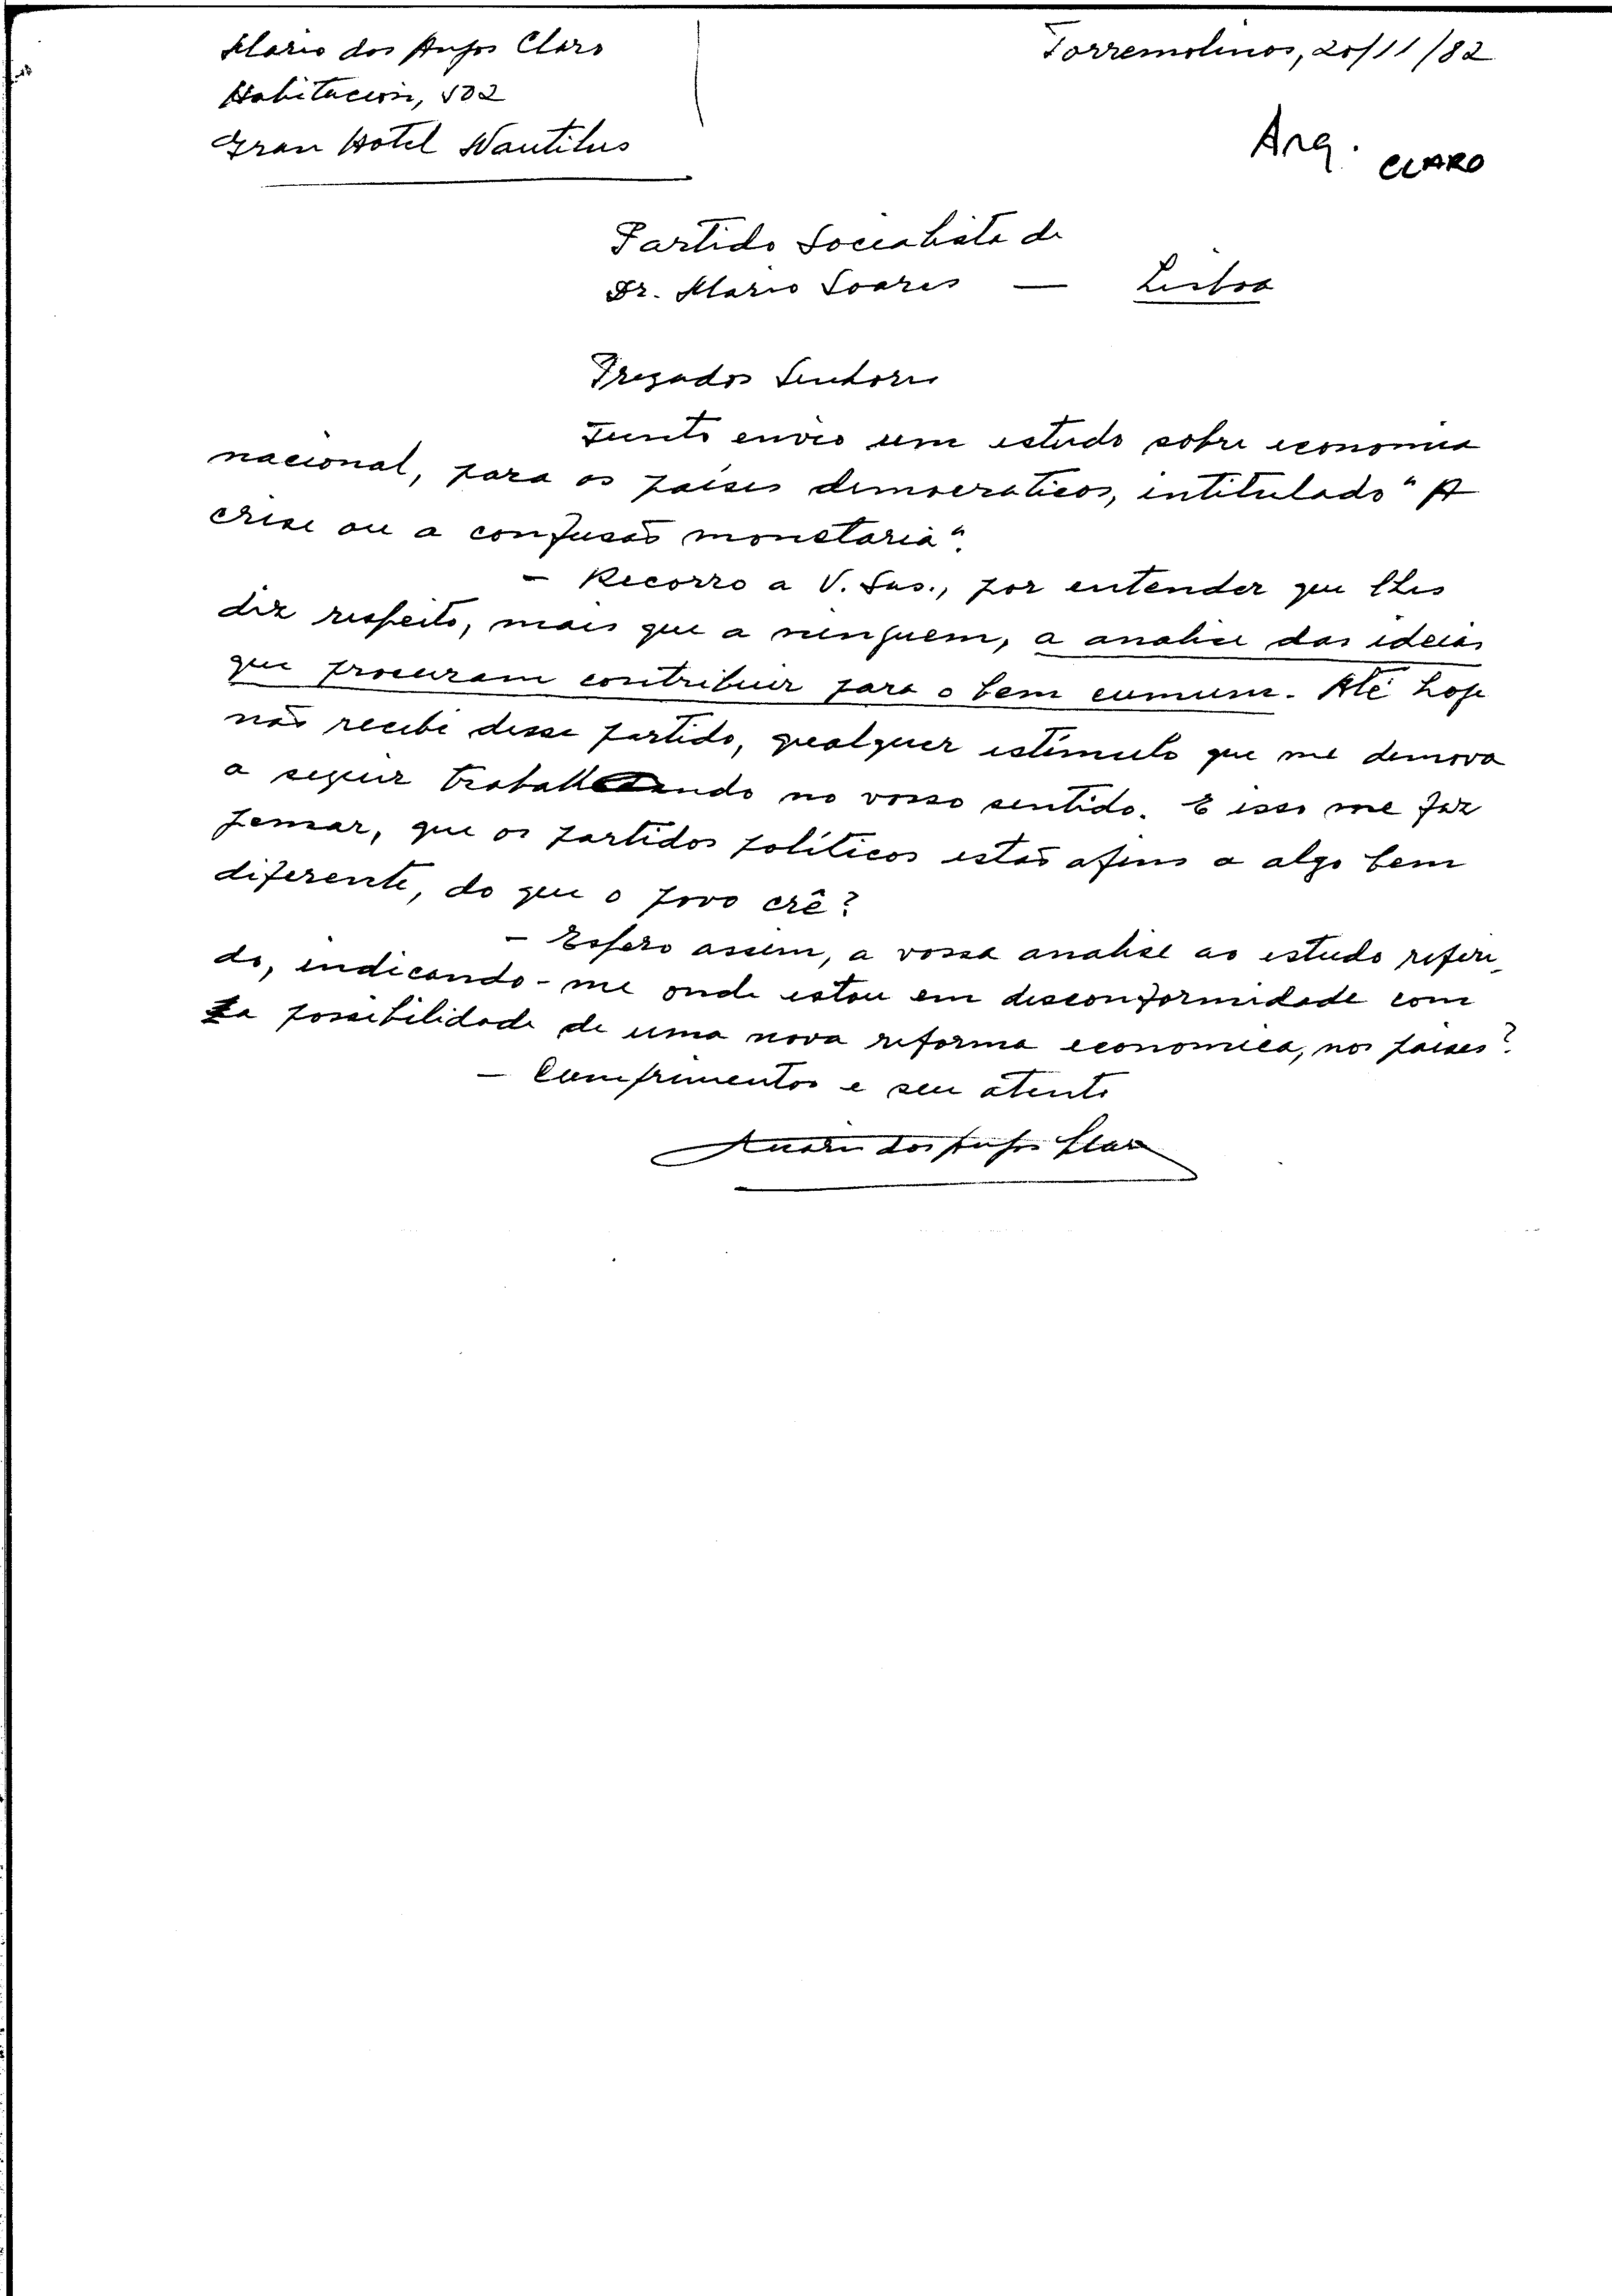 Mario dos Anjos Claro
Habitacion, 502
Gran Hotel Nautilus
Torremolinos, 20/11/82
Arq. CLARO
Partido Socialista de
Dr. Mario Soares — Lisboa
Prezados Senhores
Junto envio um estudo sobre economia
nacional, para os países democraticos, intitulado "A
crise ou a confusão monetaria".
- Recorro a V. Sas., por entender que lhes
diz respeito, mais que a ninguem, a analise das ideias
que procuram contribuir para o bem cumum. Até hoje
não recebi desse partido, qualquer estímulo que me demova
a seguir trabalhando no vosso sentido. E isso me faz
pensar, que os partidos políticos estão afins a algo bem
diferente, do que o povo crê?
- Espero assim, a vossa analise ao estudo referi-
do, indicando-me onde estou em desconformidade com
a possibilidade de uma nova reforma economica, nos paises?
- Cumprimentos e seu atento
Mario dos Anjos Claro